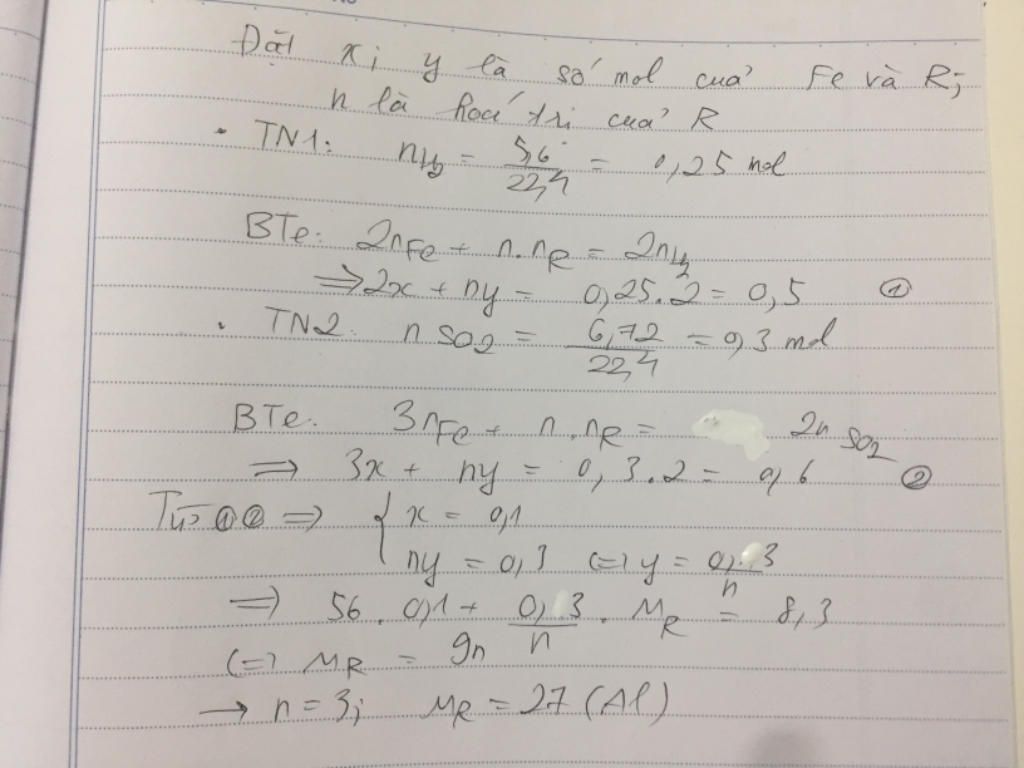 Đặt x; y là số mol của Fe và R;
n là hoá trị của R
• TN1: nH2 = 5,6/22,4 = 0,25 mol
BTe: 2nFe + n.nR = 2nH2
⇒ 2x + ny = 0,25.2 = 0,5 ①
• TN2: nSO2 = 6,72/22,4 = 0,3 mol
BTe: 3nFe + n.nR = 2nSO2
⇒ 3x + ny = 0,3.2 = 0,6 ②
Từ ①② ⇒ { x = 0,1
ny = 0,3 (=) y = 0,3/n
⇒ 56.0,1 + 0,3/n . MR = 8,3
(=) MR = 9n
→ n = 3; MR = 27 (Al)